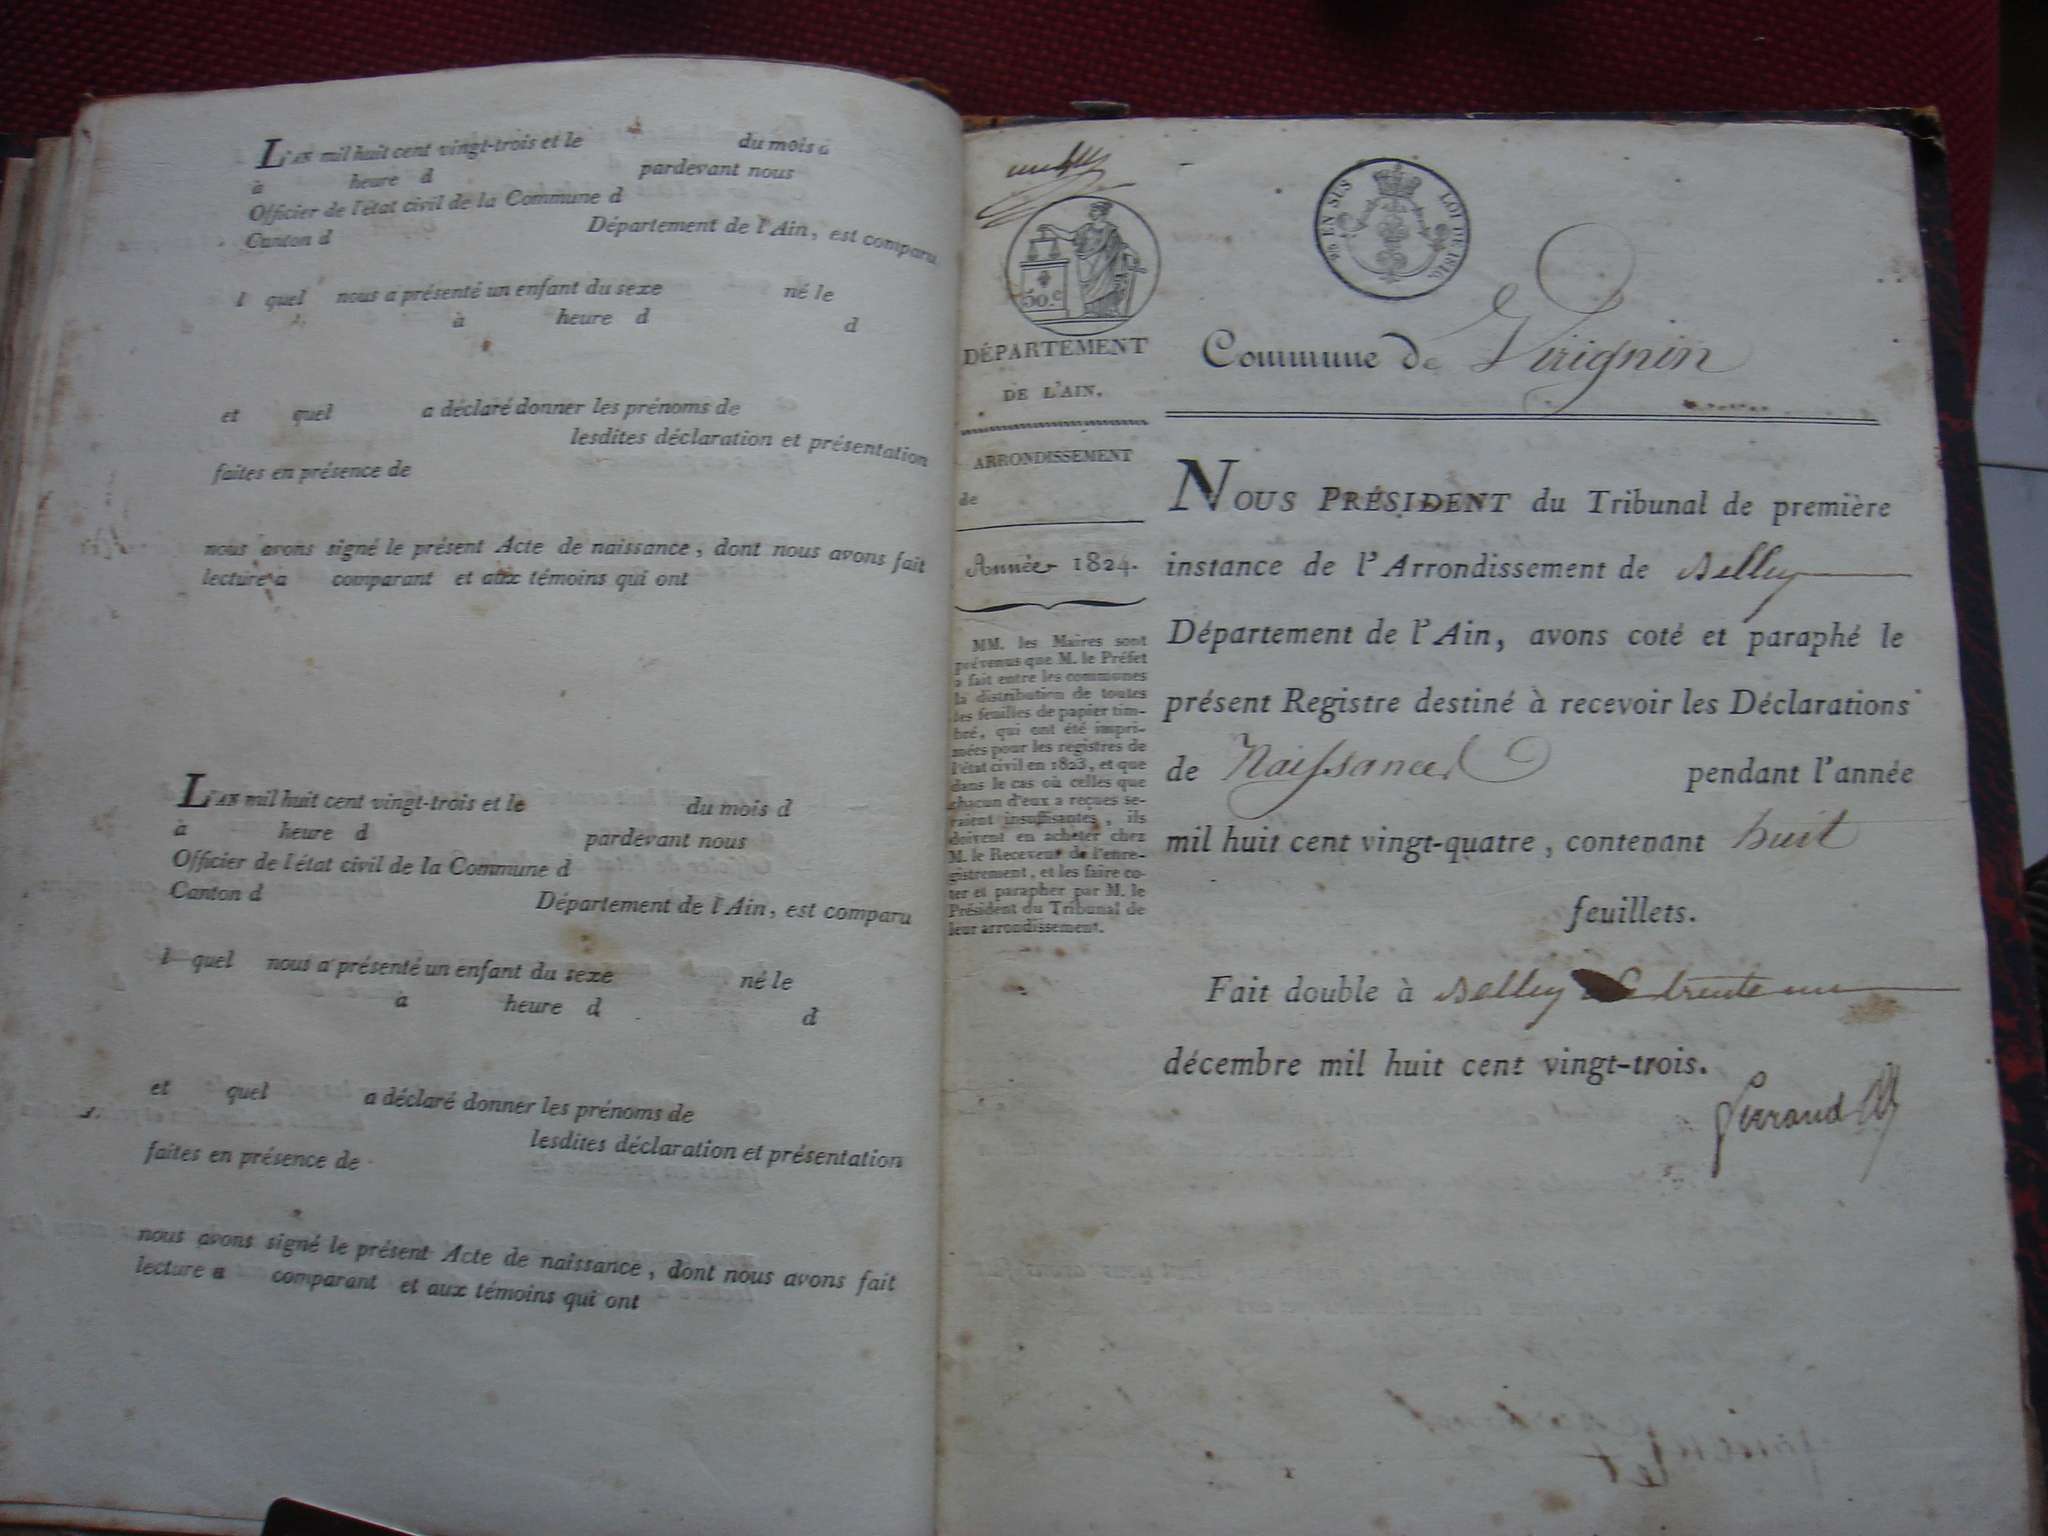 L'AN mil huit cent vingt-trois et le du mois d
à heure d pardevant nous
Officier de l'état civil de la Commune d
Canton d Département de l'Ain, est comparu
l quel nous a présenté un enfant du sexe né le
à heure d d
et quel a déclaré donner les prénoms de
lesdites déclaration et présentation
faites en présence de
nous avons signé le présent Acte de naissance, dont nous avons fait
lecture a comparant et aux témoins qui ont
L'AN mil huit cent vingt-trois et le du mois d
à heure d pardevant nous
Officier de l'état civil de la Commune d
Canton d Département de l'Ain, est comparu
l quel nous a présenté un enfant du sexe né le
à heure d d
et quel a déclaré donner les prénoms de
lesdites déclaration et présentation
faites en présence de
nous avons signé le présent Acte de naissance, dont nous avons fait
lecture a comparant et aux témoins qui ont
50.c
DÉPARTEMENT
DE L'AIN.
ARRONDISSEMENT
de
Année 1824.
MM. les Maires sont
prévenus que M. le Préfet
a fait entre les communes
la distribution de toutes
les feuilles de papier tim-
bré, qui ont été impri-
mées pour les registres de
l'état civil en 1823, et que
dans le cas où celles que
chacun d'eux a reçues se-
raient insuffisantes, ils
doivent en acheter chez
M. le Receveur de l'enre-
gistrement, et les faire co-
ter et parapher par M. le
Président du Tribunal de
leur arrondissement.
EN SUS LOI DE 1816.
Commune de Virignin
NOUS PRÉSIDENT du Tribunal de première
instance de l'Arrondissement de Belley
Département de l'Ain, avons coté et paraphé le
présent Registre destiné à recevoir les Déclarations
de Naissances pendant l'année
mil huit cent vingt-quatre, contenant huit
feuillets.
Fait double à Belley le trente un
décembre mil huit cent vingt-trois.